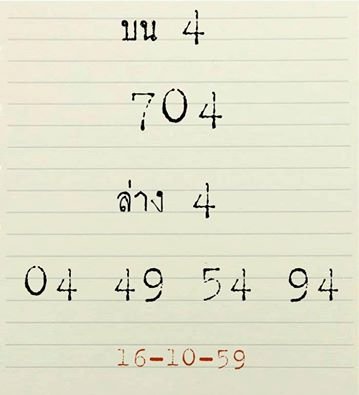 บน 4
704
ล่าง 4
04 49 54 94
16-10-59